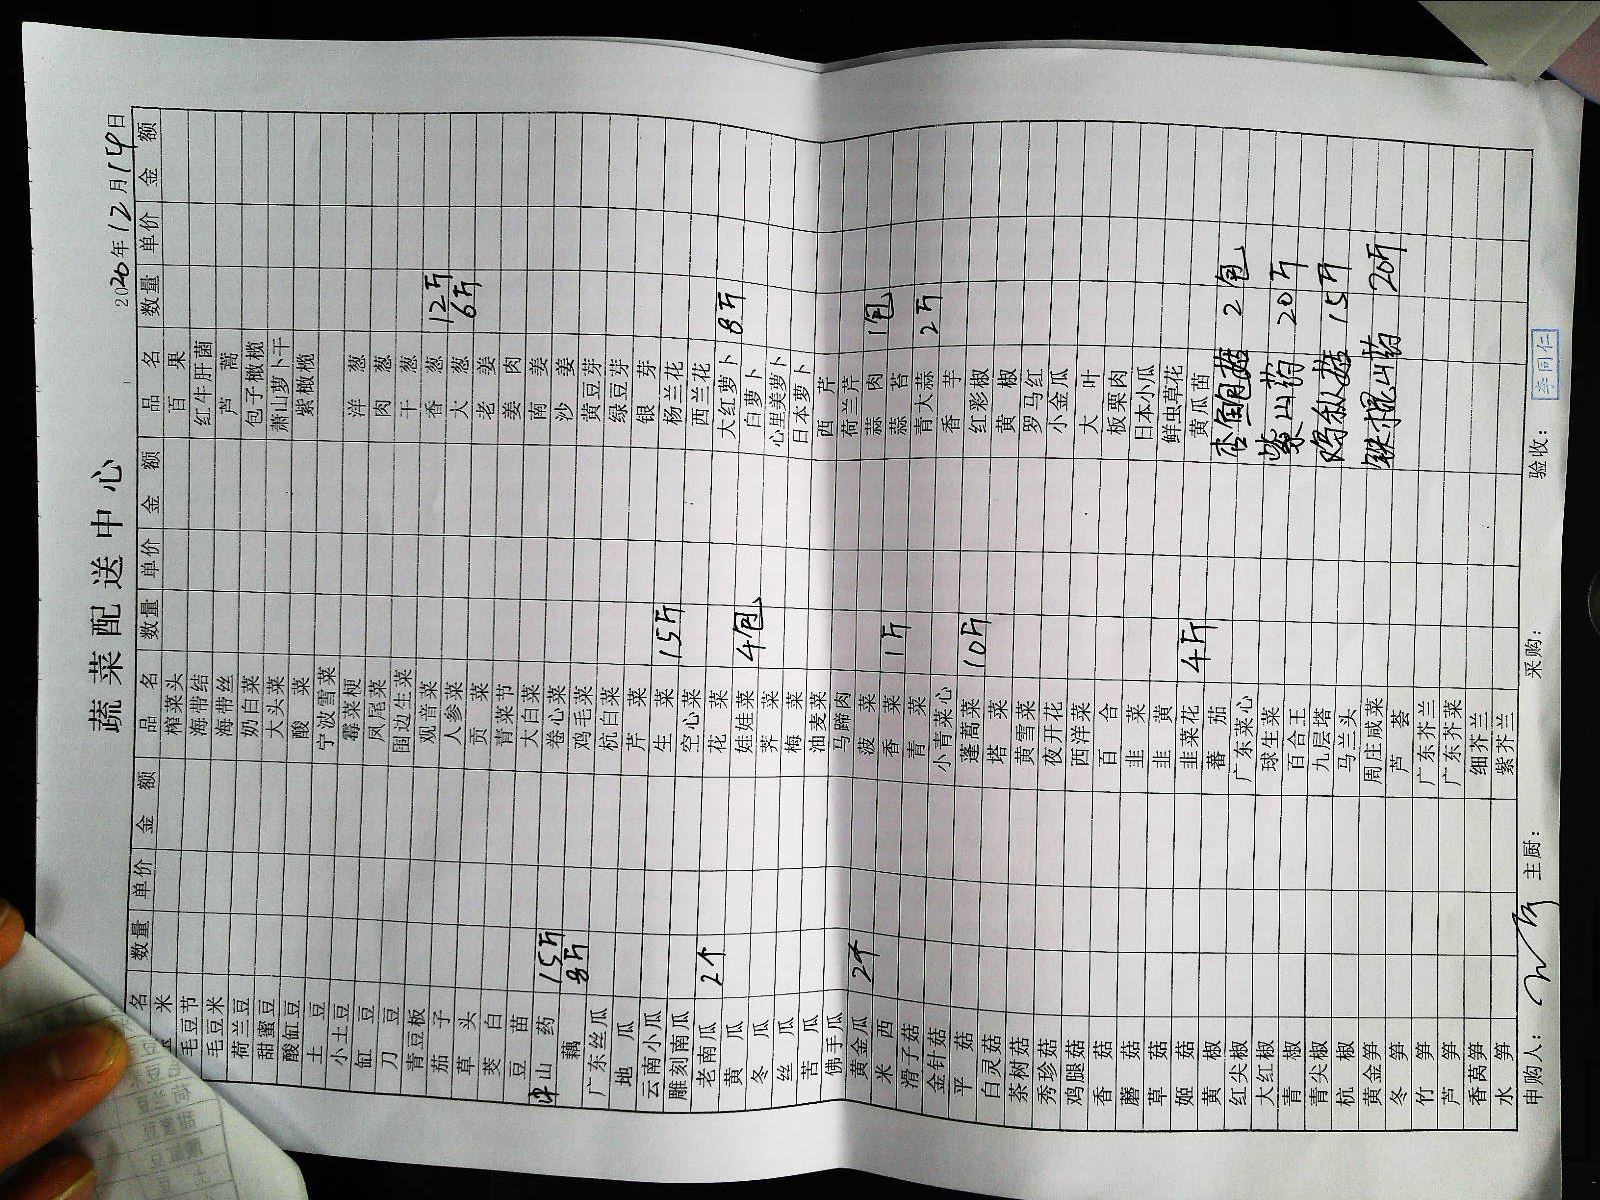 蔬菜配送中心
2020年12月14日
品名 数量 单价 金额 品名 数量 单价 金额 品名 数量 单价 金额
米 榨菜头 百果
毛豆节 海带结 红牛肝菌
毛豆米 海带丝 芦蒿
荷兰豆 奶白菜 包子橄榄
甜蜜豆 大头菜 萧山萝卜干
酸缸豆 酸菜 紫橄榄
土豆 宁波雪菜
小土豆 霉菜梗 洋葱
缸豆 凤尾菜 肉葱
刀豆 围边生菜 干葱
青豆板 观音菜 香葱 12斤
茄子 人参菜 大葱 6斤
草头 贡菜 老姜
茭白 青菜节 姜肉
豆苗 大白菜 南姜
山药 15斤 卷心菜 沙姜
藕 8斤 鸡毛菜 黄豆芽
广东丝瓜 杭白菜 绿豆芽
地瓜 芹菜 银芽
云南小瓜 生菜 15斤 杨兰花
雕刻南瓜 空心菜 西兰花
老南瓜 2个 花菜 大红萝卜 8斤
黄瓜 娃娃菜 4包 白萝卜
冬瓜 荠菜 心里美萝卜
丝瓜 梅菜 日本萝卜
苦瓜 油麦菜 西芹
佛手瓜 马蹄肉 荷兰芹
黄金瓜 2个 菠菜 蒜肉 1包
米西 香菜 1斤 蒜苔
滑子菇 青菜 青大蒜 2斤
金针菇 小青菜心 香芋
平菇 蓬蒿菜 10斤 红彩椒
白灵菇 塔菜 黄椒
茶树菇 黄雪菜 罗马红
秀珍菇 夜开花 小金瓜
鸡腿菇 西洋菜 大叶
香菇 百合 板栗肉
蘑菇 韭菜 日本小瓜
草菇 韭黄 鲜虫草花
姬菇 韭菜花 4斤 黄瓜苗
黄椒 蕃茄 杏鲍菇 2包
红尖椒 广东菜心
大红椒 球生菜 紫山药 20斤
青椒 百合王
青尖椒 九层塔 鸡枞菇 15斤
杭椒 马兰头
黄金笋 周庄咸菜 铁棍山药 20斤
冬笋 芦荟
竹笋 广东芥兰
芦笋 广东芥菜
香莴笋 细芥兰
水笋 紫芥兰
申购人: 主厨: 采购: 验收: 李同仁